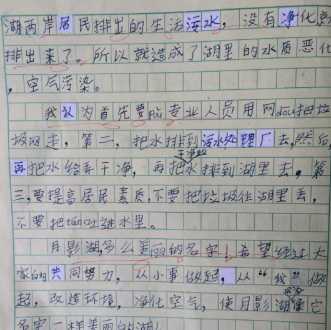 湖两岸居民排出的生活污水，没有净化就
排出来了。所以就造成了湖里的水质恶化
，空气污染。
我认为首先要pài专业人员用网dōu把垃
圾网走，第二，把水排到污水处理厂去，然后
再把水给弄干净，再把水排到湖里去，第
三，要提高居民素质，不要把垃圾往湖里丢，
不要把 进水里。
月影湖多么美丽的名字！希望经过大
家的共同努力，从小事做起，从“我 做
起，改造环境，净化空气，使月影湖像它
名字一样美丽的湖！